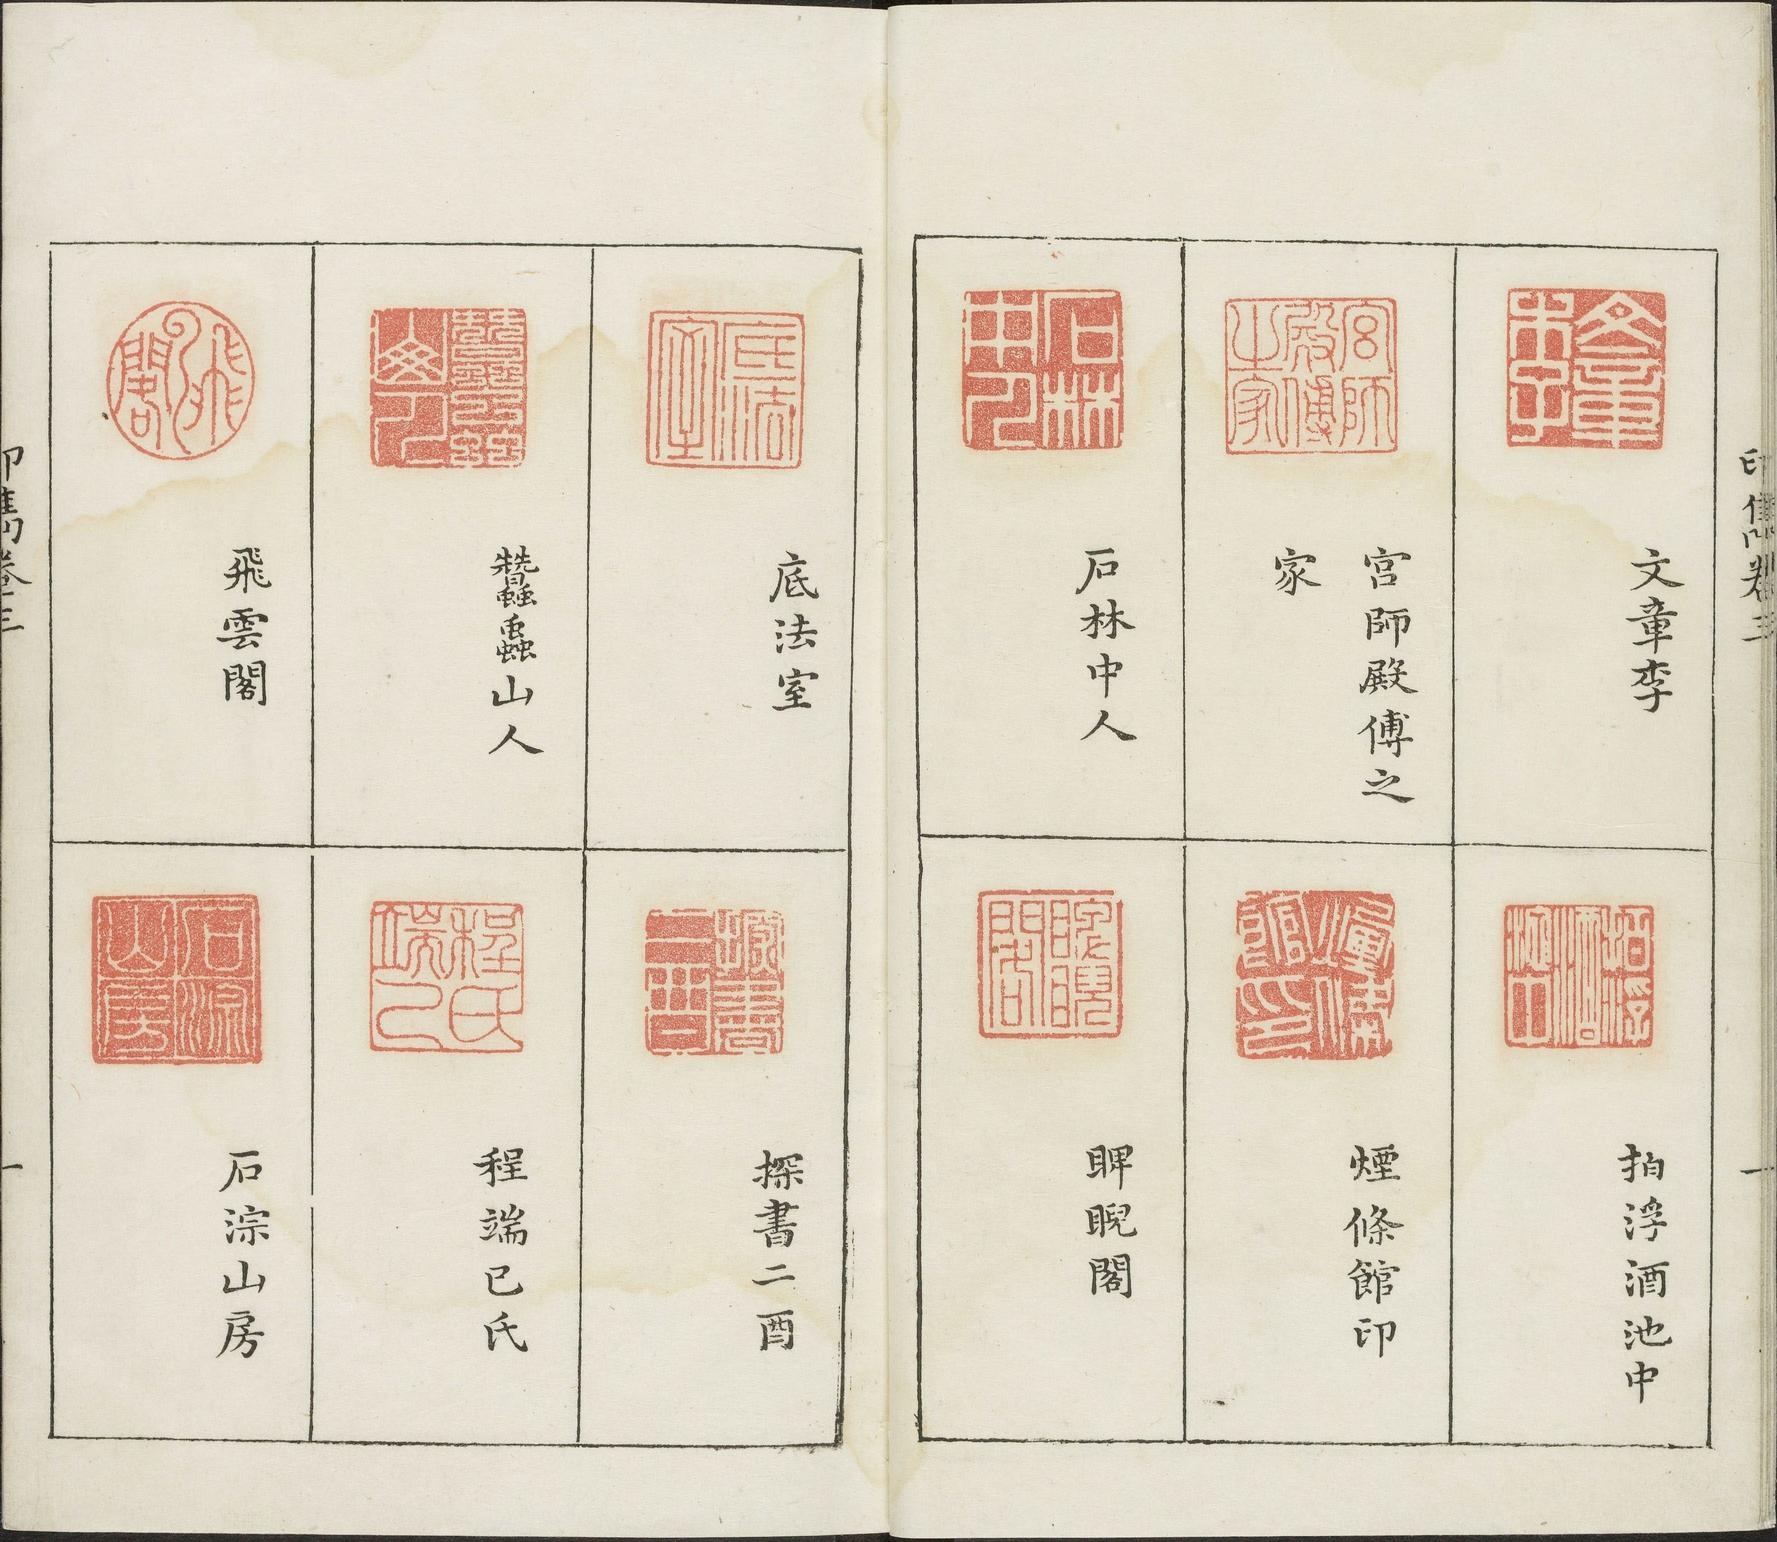 印雋卷三
一
文章李
宮師殿傅之
家
石林中人
拍浮酒池中
煙條館印
睥睨閣
底法室
蠶山人
飛雲閣
探書二酉
程端已氏
石淙山房
印雋卷三
一